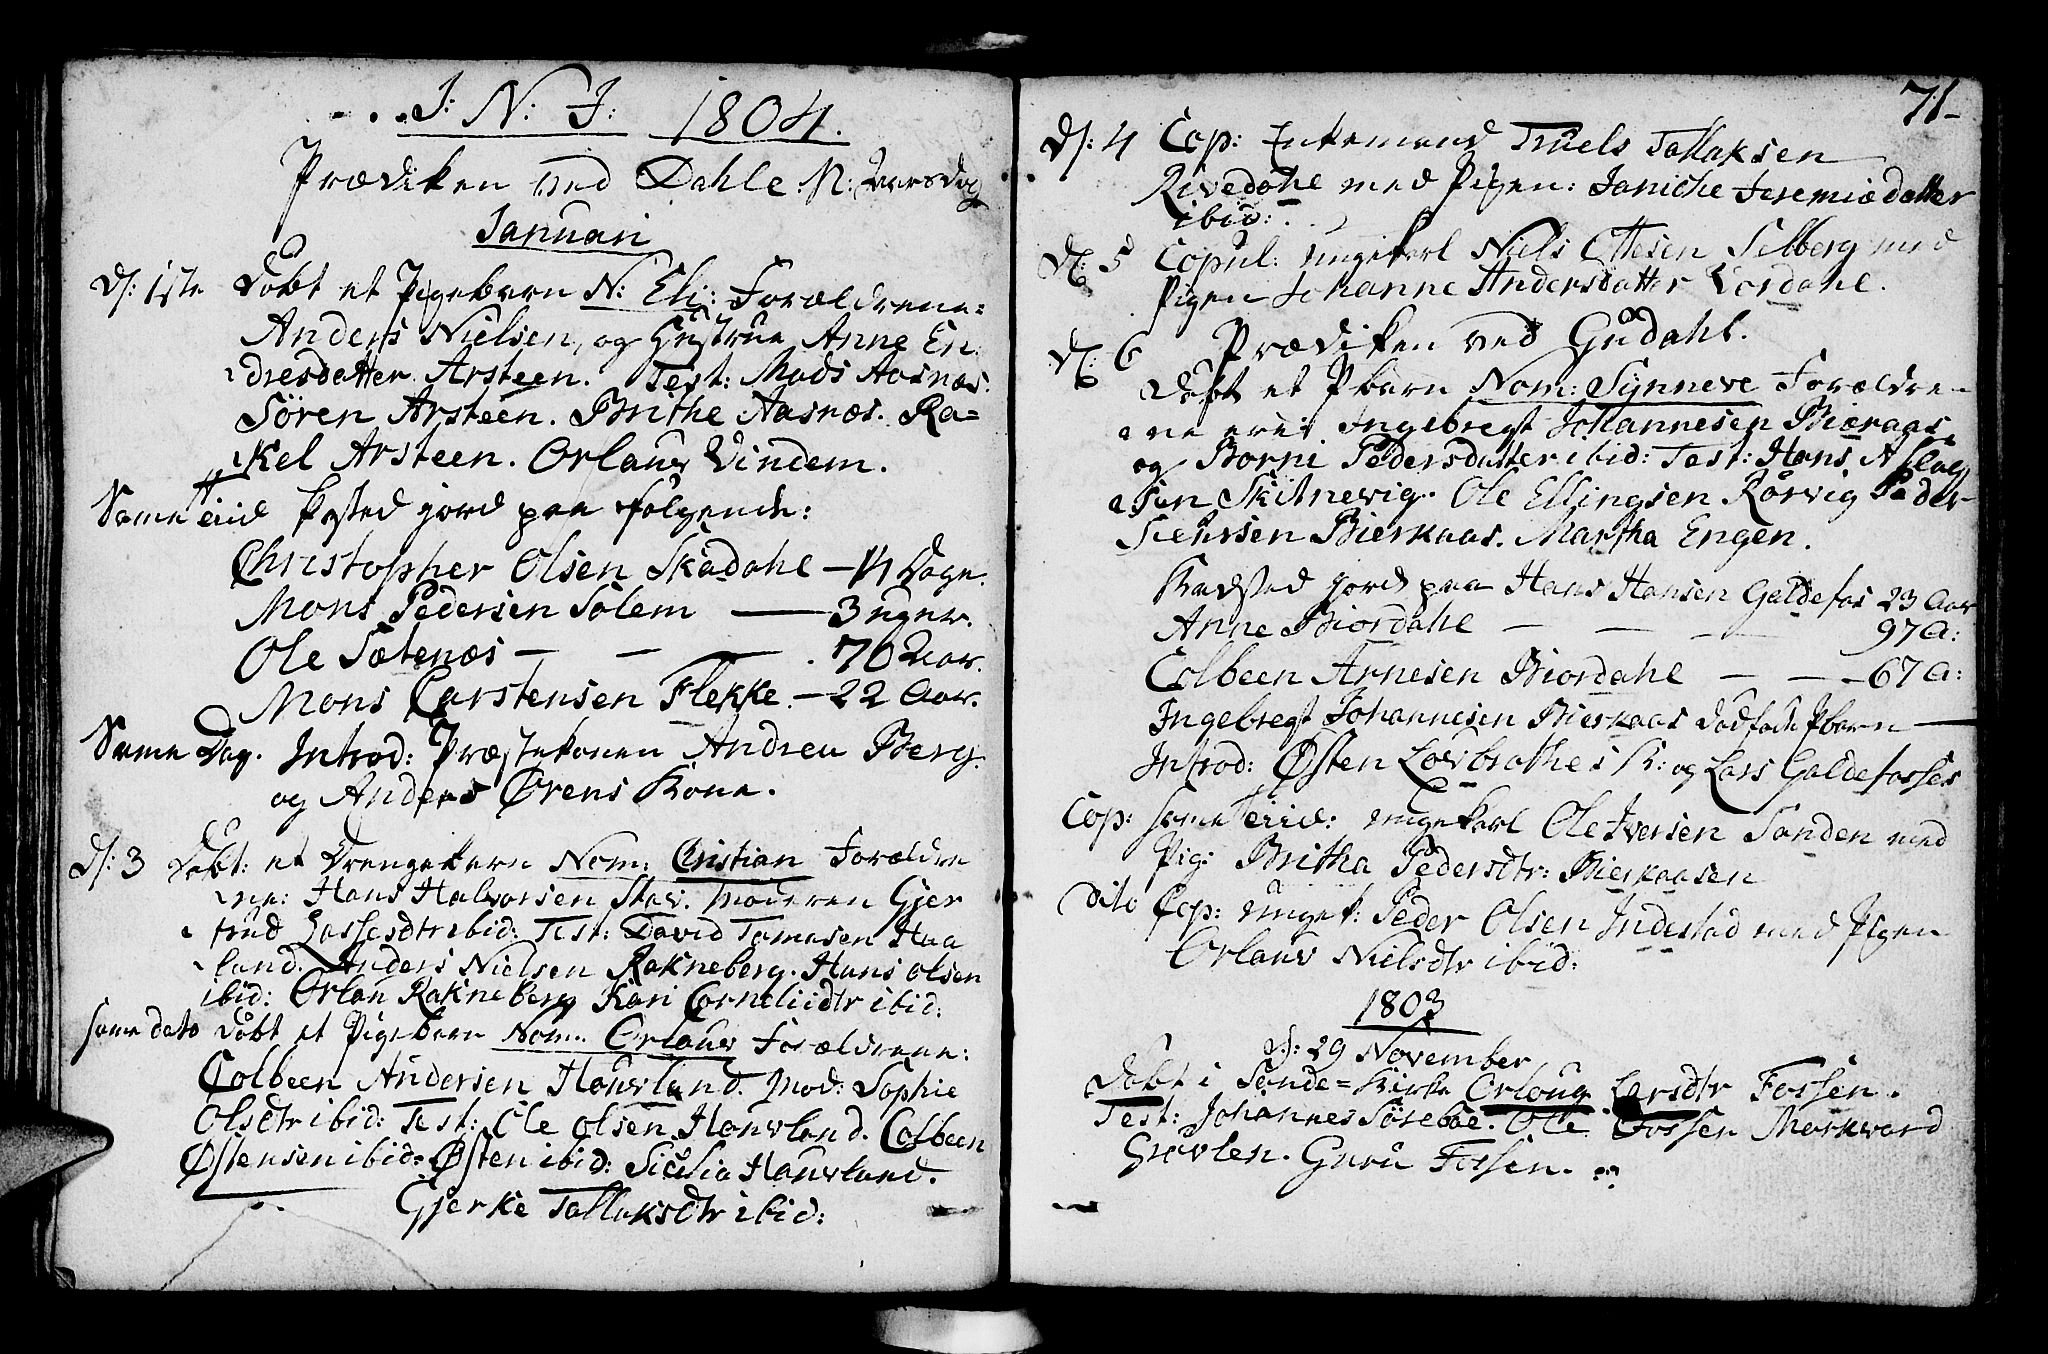 J: N: J: 1804.
Prædiken ved Dahle N: Aarsdag
Januari
d: 1ste Døbt et Pigebarn N: Eli: Forældrene:
Anders Nielsen, og Hustrue Anne En
dresdatter Arsteen. Test: Mads Aasnæs.
Sören Arsteen. Brithe Aasnæs. Ra=
kel Arsteen. Orlaug Vindem.
Samme Tiid kasted jord paa følgende:
Christopher Olsen Skadahl — 14 Dage.
Mons Pedersen Solem — 3 uger.
Ole Sætenæs — — — 70 Aar.
Mons Carstensen Flekke. — 22 Aar.
Samme Dag. Introd: Præstekonen Andrea Berg.
og Anders Ørens Kone.
d: 3 Døbt: et Drengebarn Nom: Cristian Forældre
ne: Hans Halvorsen Skov. Moderen Gjer
trud Lassesdtr ibid: Test: David Tomasen Haa
land. Anders Nielsen Rakneberg. Hans Olsen
ibid: Orlau Rakneberg Kari Corneliidtr ibid:
same dato Døbt et Pigebarn Nom: Orlaug Forældrene:
Colbeen Andersen Houvland. Mod: Sophie
Olsdtr ibid: Test: Ole Olsen Houvland. Colbeen
Østensen ibid: Østen ibid: Sicilia Houvland.
Gjerke Tollaksdtr ibid:
71-
d: 4 Cop: Enkemand Truels Tollaksen
Rivedahl med Pigen: Janiche Jeremiædatter
ibid:
d: 5 Copul: ungekarl Niels Ottesen Selberg med
Pigen Johanne Andersdatter Lordahl.
d: 6 Prædiken ved Guddahl.
Døbt et Pbarn Nom: Synneve Forældre-
ne ere: Ingebregt Johannesen Bieraas
og Borni Pedersdatter ibid: Test: Hans Aslag
sen Skitnevig. Ole Ellingsen Rørvig Peder
Siehrsen Bierkaas. Martha Engen.
Kadsted jord paa Hans Hansen Galdefos 23 Aar
Anne Biordahl — — — 97 A:
Colbeen Arnesen Biordahl — — - 67 A:
Ingebregt Johannesen Bierkaas dødfødt Pbarn —
Introd: Østen Lovbrothes K: og Lars Galdefosses
Cop: same Tiid: ungekarl Ole Iversen Sanden med
Pig: Britha Pedersdtr: Bierkaasen
Dito Cop: ungek: Peder Olsen Indestad med Pigen
Orlaug Nielsdtr ibid:
1803
d: 29 November
Døbt i Sønde=Kirke Orloug Larsdtr Fossen.
Test: Johannes Söreboe. Ole Fossen Markvard
Grøvlen. Guru Fossen.